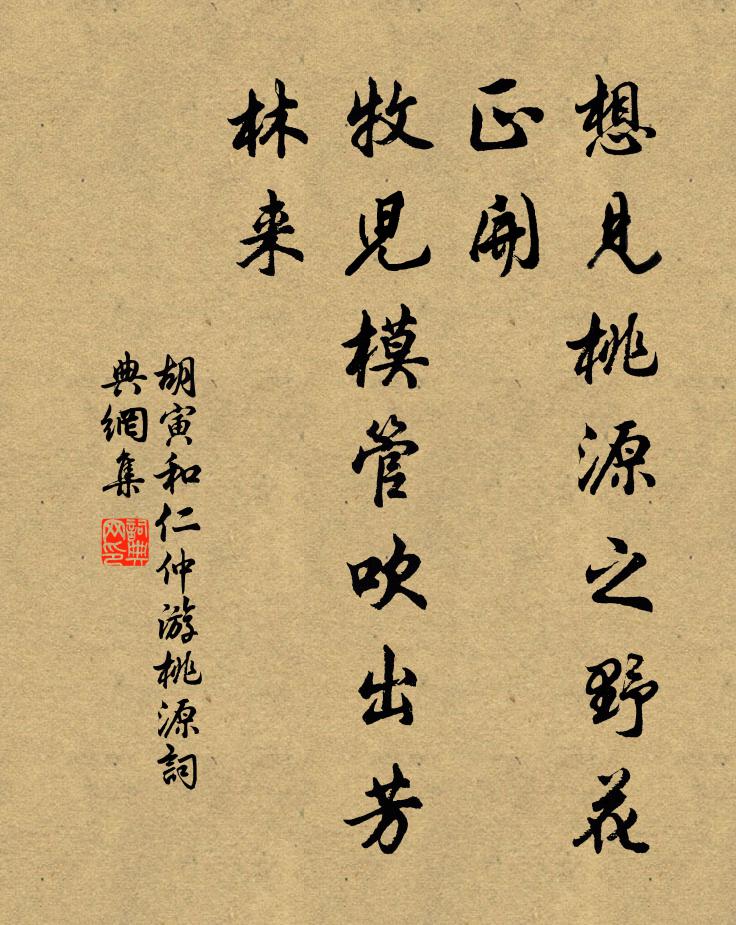 想見桃源之野花
正開
牧児模管吹出芳
林来
胡寅和仁仲游桃源詞
典網集
詞典网印